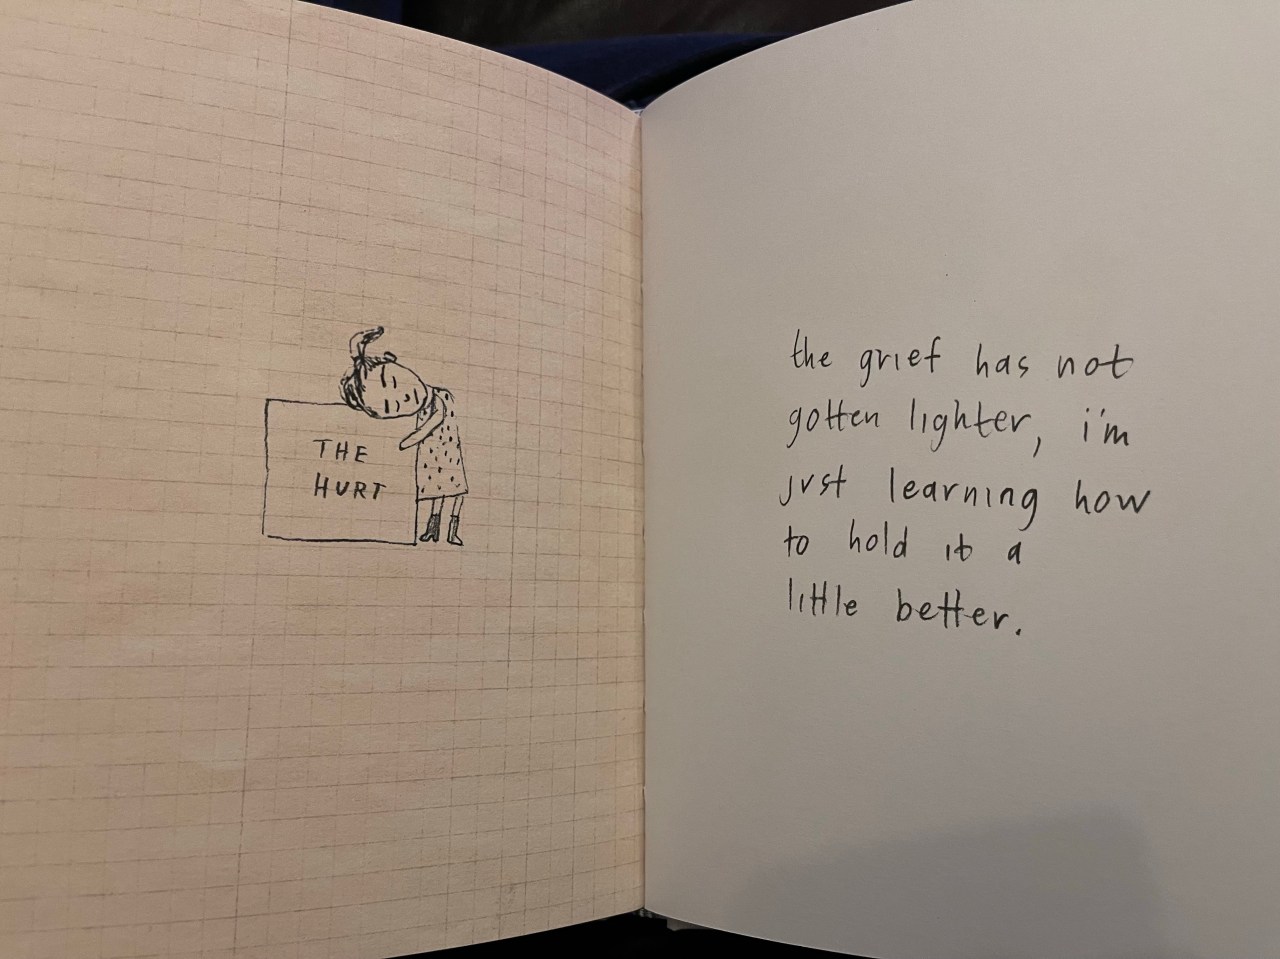 THE
HURT
the grief has not
gotten lighter, i'm
just learning how
to hold it a
little better.